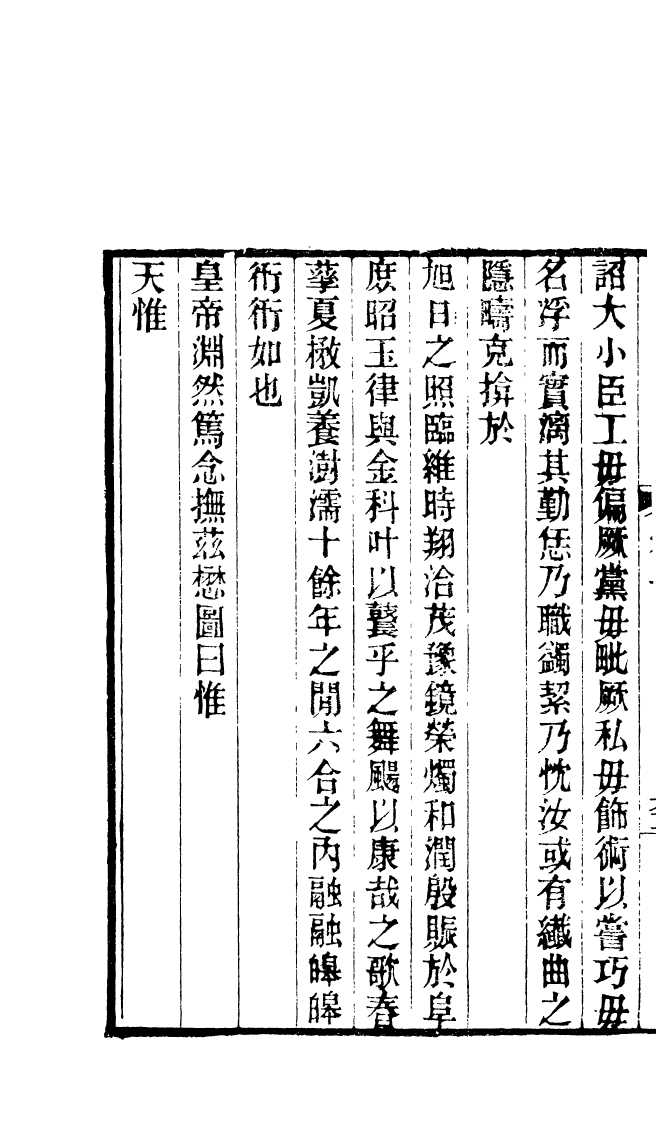 詔大小臣工毋偏厥黨毋毗厥私毋飾術以嘗巧毋
名浮而實漓其勤恁乃職蠲絜乃忱汝或有纖曲之
隱疇克揜於
旭日之照臨維時翔洽茂豫鏡榮燭和潤殷賑於阜
庶昭玉律與金科叶以鼚乎之舞颺以康哉之歌春
孳夏楙凱養澍濡十餘年之閒六合之內融融皞皞
衎衎如也
皇帝淵然篤念撫茲懋圖曰惟
天惟